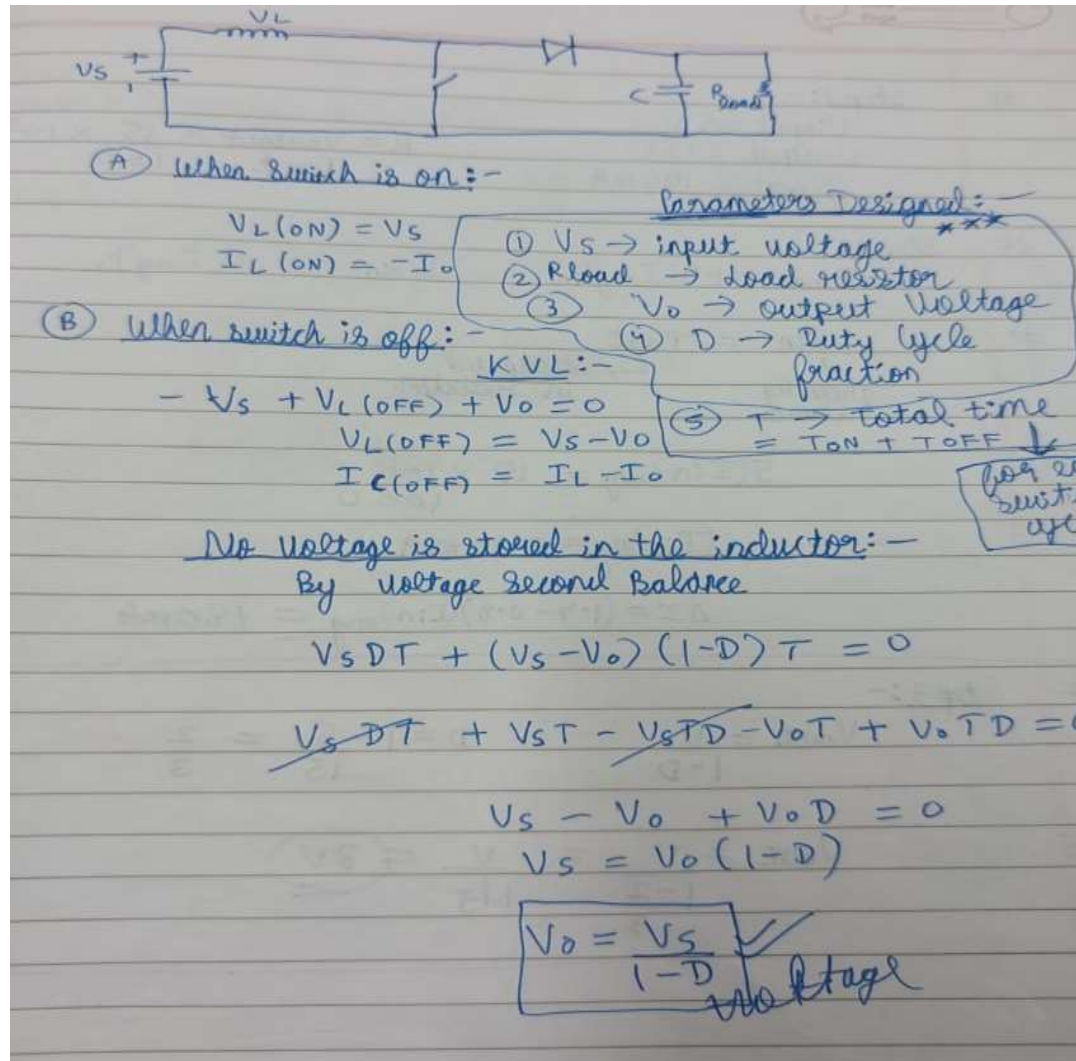 VL
VS + -
C Rload
(A) When Switch is on :-
VL (ON) = VS
IL (ON) = -Io
Parameters Designed :-
***
① VS → input voltage
② Rload → Load resistor
③ Vo → output Voltage
④ D → Duty Cycle
fraction
⑤ T → total time
= TON + TOFF
(B) When switch is off :-
KVL :-
- VS + VL (OFF) + Vo = 0
VL (OFF) = VS - VO
IC(OFF) = IL - Io
No Voltage is stored in the inductor :-
By Voltage Second Balance
VS DT + (VS - Vo) (1-D) T = 0
VS DT + VST - VSTD - VOT + VO TD = 0
VS - Vo + Vo D = 0
VS = Vo (1-D)
Vo = VS / 1-D